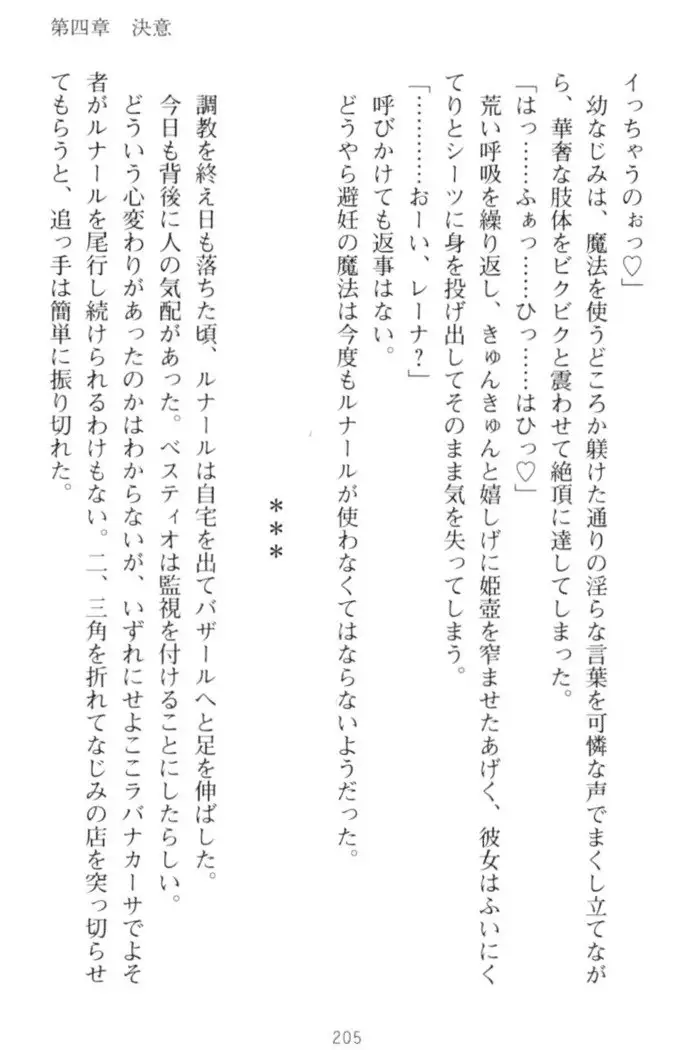 第四章　決意
イっちゃうのぉっ♡」
　幼なじみは、魔法を使うどころか躾けた通りの淫らな言葉を可憐な声でまくし立てなが
ら、華奢な肢体をビクビクと震わせて絶頂に達してしまった。
「はっ……ふぁっ……ひっ……はひっ♡」
　荒い呼吸を繰り返し、きゅんきゅんと嬉しげに姫壺を窄ませたあげく、彼女はふいにく
てりとシーツに身を投げ出してそのまま気を失ってしまう。
「…………おーい、レーナ？」
　呼びかけても返事はない。
　どうやら避妊の魔法は今度もルナールが使わなくてはならないようだった。
＊＊＊
　調教を終え日も落ちた頃、ルナールは自宅を出てバザールへと足を伸ばした。
　今日も背後に人の気配があった。ベスティオは監視を付けることにしたらしい。
　どういう心変わりがあったのかはわからないが、いずれにせよここラバナカーサでよそ
者がルナールを尾行し続けられるわけもない。二、三角を折れてなじみの店を突っ切らせ
てもらうと、追っ手は簡単に振り切れた。
205